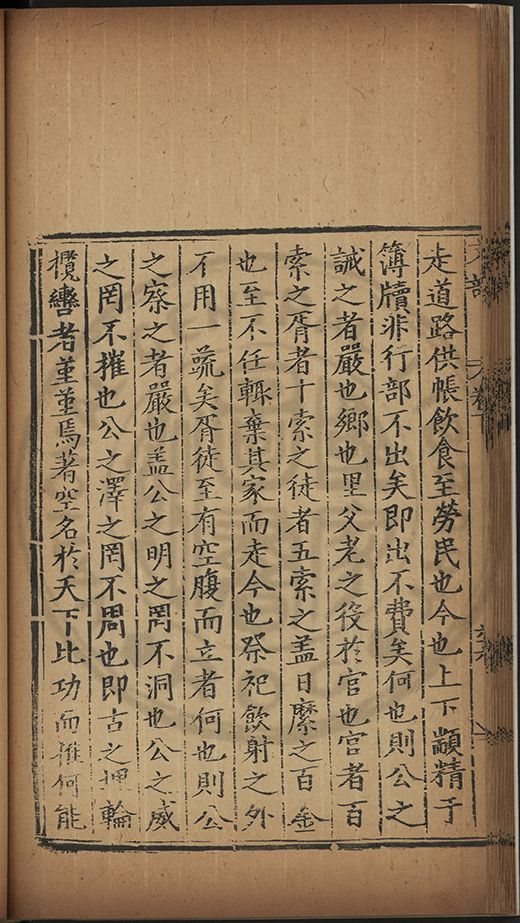 走道路供帳飲食至勞民也今也上下顓精于
簿牘非行部不出矣即出不費矣何也則公之
誠之者嚴也鄉也里父老之役於官也官者百
索之胥者十索之徒者五索之盖日縻之百金
也至不任輙棄其家而走今也祭祀飲射之外
不用一蔬矣胥徒至有空腹而立者何也則公
之察之者嚴也盖公之明之罔不洞也公之威
之罔不摧也公之澤之罔不周也即古之埋輪
攬轡者堇堇焉著空名於天下比功而誰何能